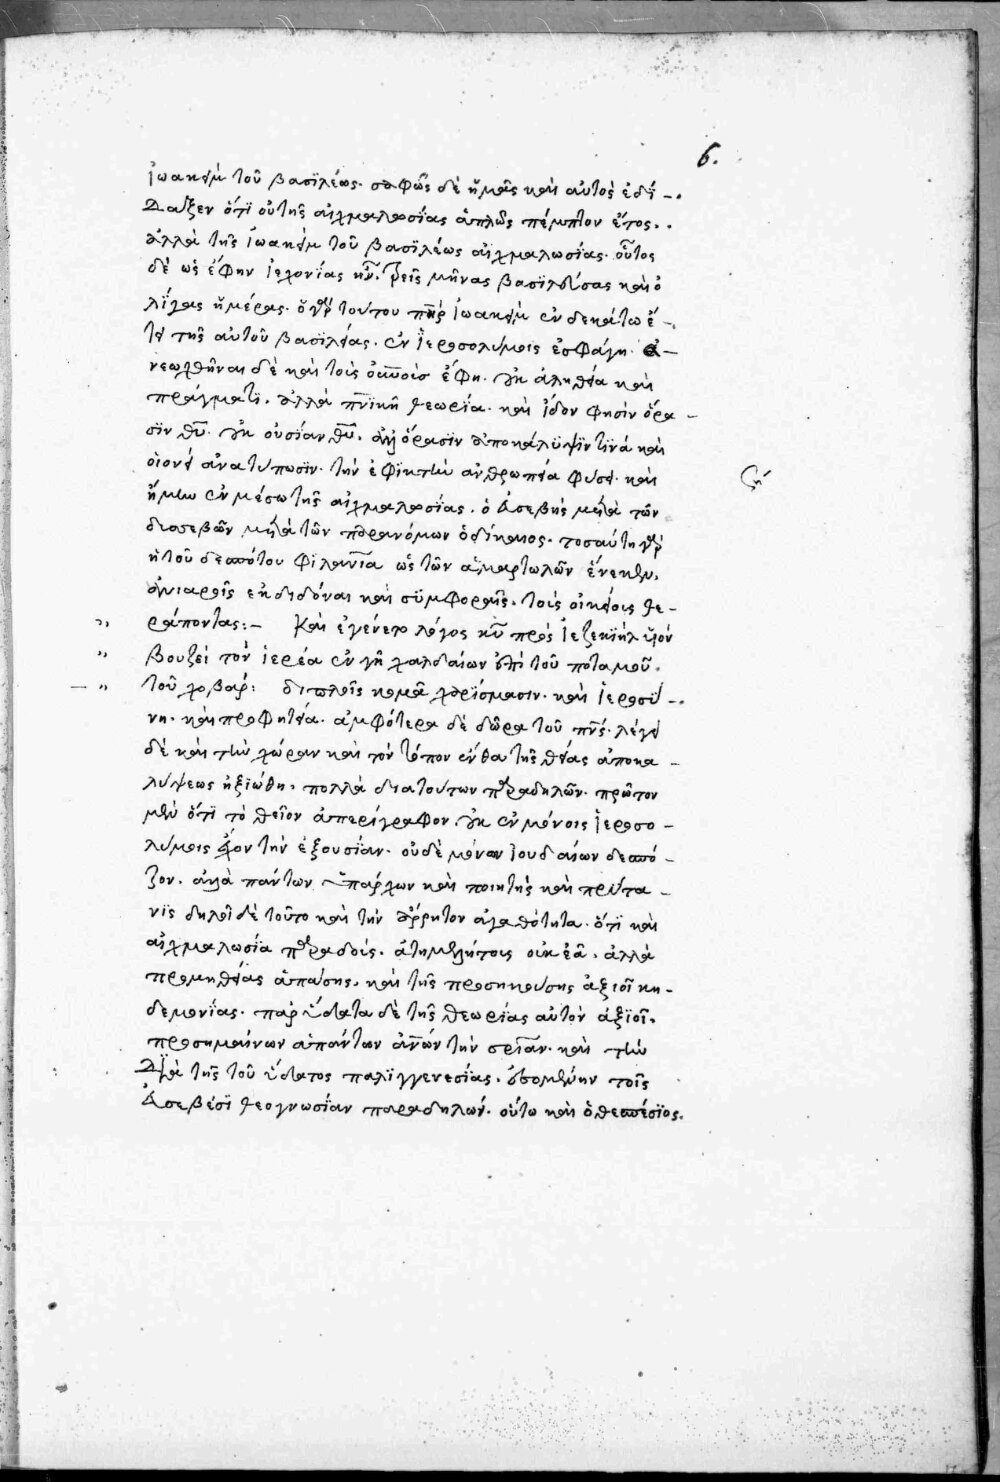 6.
ἰωακεὶμ τοῦ βασιλέως. σαφῶς δὲ ἡμᾶς καὶ αὐτὸς ἐδί –.
δαξεν ὅτι οὐ τῆς αἰχμαλωσίας ἁπλῶς πέμπτον ἔτος..
ἀλλὰ τῆς ἰωακεὶμ τοῦ βασιλέως αἰχμαλωσίας. οὗτος
δὲ ὡς ἔφην ἰεχονίας ἦν. τρεῖς μῆνας βασιλεύσας καὶ ὀ
λίγας ἡμέρας. ὁ γὰρ τούτου πὴρ ἰωακεὶμ ἐν δεκάτω ἔ –.
τει τῆς αὐτοῦ βασιλείας. ἐν ἱεροσολύμοις ἐσφάγη. ἀ –
νεωχθῆναι δὲ καὶ τοὺς οὐνοὺς ἔφη. οὐκ ἀληθεία καὶ
πράγματι. ἀλλὰ πνικῆ θεωρία. καὶ ἴδον φησὶν ὅρα –
σιν θυ. οὐκ οὐσίαν θυ. ὅρασιν ἀποκάλυψιν τινὰ καὶ
οἱονεὶ ἀνατύπωσιν. τὴν ἐφικτὴν ἀνθρωπεία φύσει. καὶ
ἤμην ἐν μέσω τῆς αἰχμαλωσίας. ὁ εὐσεβὴς μετὰ τῶν
δυσσεβῶν μετὰ τῶν παρανόμων ὁ δίκαιος. τοσαύτη γὰρ
ἡ τοῦ δεσπότου φιλανία ὡς τῶν ἁμαρτωλῶν ἕνεκεν.
ἀνιαραῖς ἐκδιδόναι καὶ συμφοραῖς. τοὺς οἰκείους θε –
ράποντας:– Καὶ ἐγένετο λόγος κυ πρὸς ἰεζεκιὴλ υἱὸν
βουζεὶ τὸν ἱερέα ἐν γῆ χαλδαίων ἐπὶ τοῦ ποταμοῦ.
τοῦ χοβάρ: διπλοῖς κομᾶ χαρίσμασιν. καὶ ἱερωσύ –.
νη. καὶ προφητεία. ἀμφότερα δὲ δῶρα τοῦ πνς. λέγει
δὲ καὶ τὴν χώραν καὶ τὸν τόπον ἔνθα τῆς θείας ἀποκα –
λύψεως ἠξιώθη. πολλὰ διὰ τούτων παραδηλῶν. πρῶτον
μὲν ὅτι τὸ θεῖον ἀπερίγραφον. οὐκ ἐν μόνοις ἱεροσο –
λύμοις ἔχον τὴν ἐξουσίαν. οὐδὲ μόνων ἰουδαίων δεσπό –
ζον. ἀλλὰ πάντων ὑπάρχων καὶ ποιητὴς καὶ πρύτα –
νις δηλοῖ δὲ τοῦτο καὶ τὴν ἄρρητον ἀγαθότητα. ὅτι καὶ
αἰχμαλωσία παραδούς. ἀτημελήτους οὐκ ἐᾶ. ἀλλὰ
προμηθείας ἁπάσης. καὶ τῆς προσηκούσης ἀξιοῖ κη –
δεμονίας. παρ' ὕδατα δὲ τῆς θεωρίας αὐτὸν ἀξιοῖ.
προσημαίνων ἁπάντων ἀνων τὴν σριαν. καὶ τὴν
διὰ τῆς τοῦ ὕδατος παλιγγενεσίας. ἐσομένην τοῖς
εὐσεβέσι θεογνωσίαν παραδηλών. οὕτω καὶ ὁ θεσπέσιος.